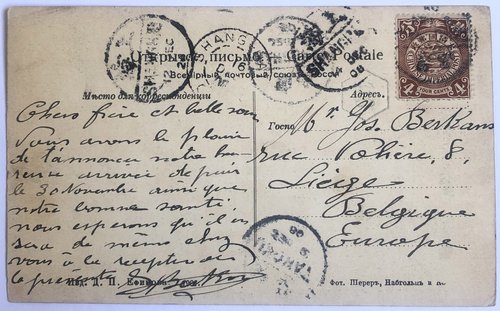 Открытое письмо — Carte Postale
Всемірный почтовый союзъ. Россія
SHANGHAI
FOUR CENTS
4 4
Мѣсто для корреспонденціи
Адресъ.
Chers frère et belle sœur
Vous avons le plaisir
de t'annoncer notre heu-
reuse arrivée depuis
le 30 Novembre ainsi que
notre bonne santé,
nous espérons qu'il en
sera de même chez
vous à la réception de
la présente
Госпо
Mr Jos. Berkans
rue
8,
Liège
Belgique
Europe
Изд. Д. П. Ефимова
Фот. Шереръ, Набгольцъ и